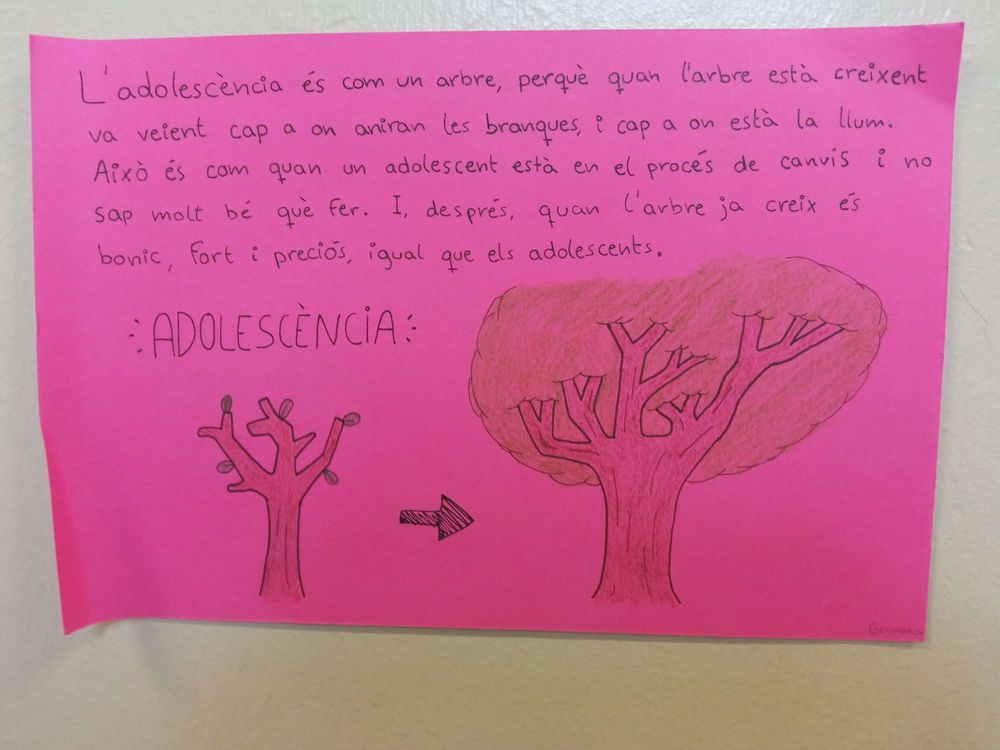 L'adolescència és com un arbre, perquè quan l'arbre està creixent
va veient cap a on aniran les branques, i cap a on està la llum.
Això és com quan un adolescent està en el procés de canvis i no
sap molt bé què fer. I, després, quan l'arbre ja creix és
bonic, fort i preciós, igual que els adolescents.
ADOLESCÈNCIA
Gemma